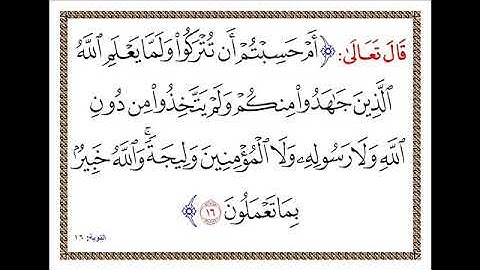 قَالَ تَعَالَىٰ: ﴿أَمْ حَسِبْتُمْ أَن تُتْرَكُوا۟ وَلَمَّا يَعْلَمِ ٱللَّهُ
ٱلَّذِينَ جَـٰهَدُوا۟ مِنكُمْ وَلَمْ يَتَّخِذُوا۟ مِن دُونِ
ٱللَّهِ وَلَا رَسُولِهِۦ وَلَا ٱلْمُؤْمِنِينَ وَلِيجَةً ۚ وَٱللَّهُ خَبِيرٌۢ
بِمَا تَعْمَلُونَ ١٦﴾
التوبة: ١٦